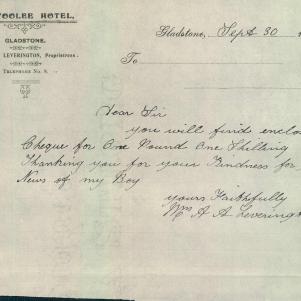 TOOLEE HOTEL,
GLADSTONE.
LEVERINGTON, Proprietress.
TELEPHONE No. 8.
Gladstone, Sept 30
To
Dear Sir
you will find enclo
Cheque for One Pound One Shilling
Thanking you for your Kindness for
News of my Boy
yours Faithfully
Mrs A A Leveringt